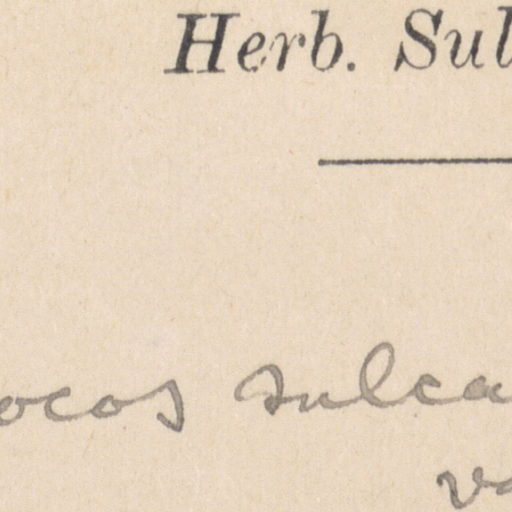 Herb. Sul
ocos sulca
va